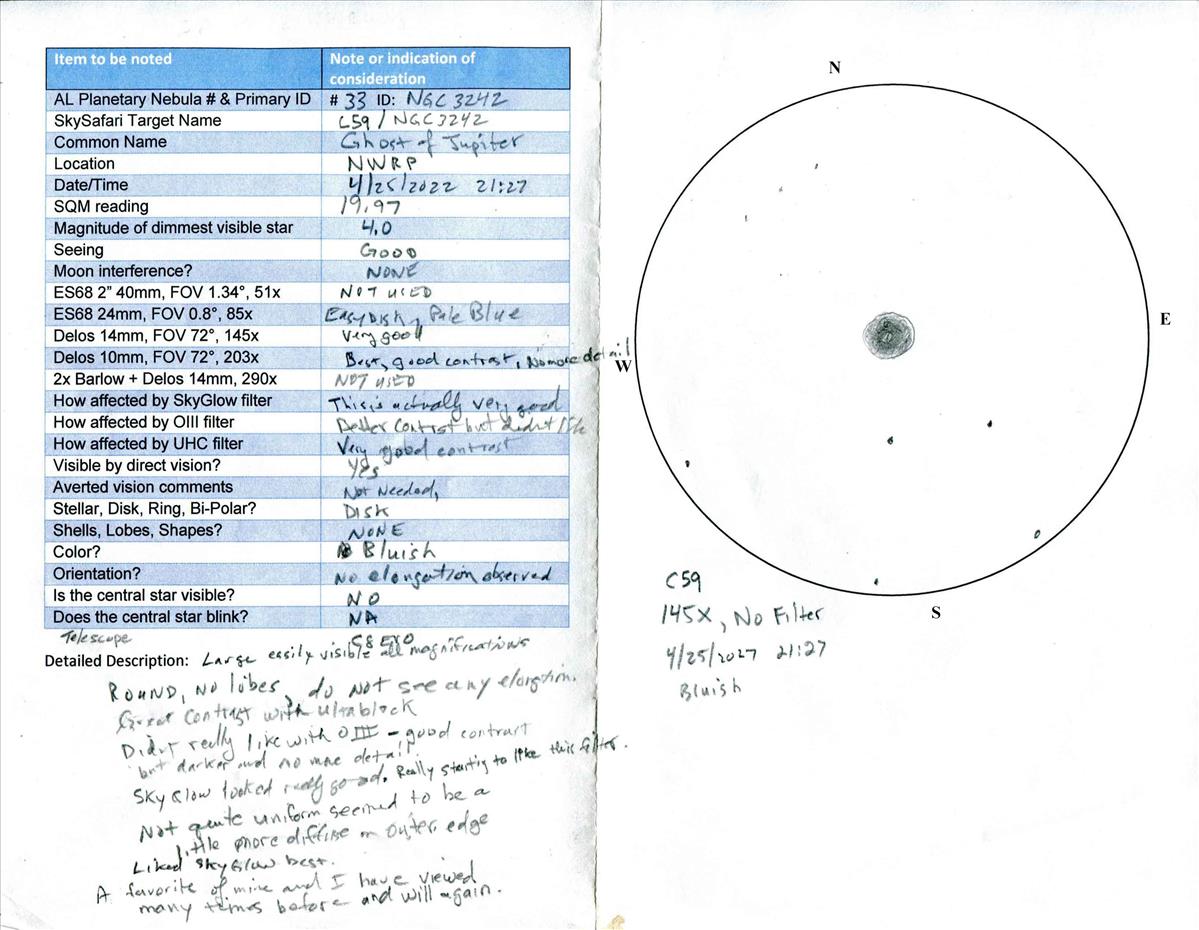 Item to be noted Note or indication of
consideration
AL Planetary Nebula # & Primary ID # 33 ID: NGC 3242
SkySafari Target Name C59 / NGC3242
Common Name Ghost of Jupiter
Location NWRP
Date/Time 4/25/2022 21:27
SQM reading 19.97
Magnitude of dimmest visible star 4.0
Seeing GOOD
Moon interference? NONE
ES68 2” 40mm, FOV 1.34°, 51x NOT USED
ES68 24mm, FOV 0.8°, 85x Easy Disk, Pale Blue
Delos 14mm, FOV 72°, 145x Very good
Delos 10mm, FOV 72°, 203x Best, good contrast, No more detail
2x Barlow + Delos 14mm, 290x NOT USED
How affected by SkyGlow filter This is actually very good
How affected by OIII filter Better contrast but didn't like
How affected by UHC filter Very good contrast
Visible by direct vision? Yes
Averted vision comments Not Needed,
Stellar, Disk, Ring, Bi-Polar? DISK
Shells, Lobes, Shapes? NONE
Color? Bluish
Orientation? No elongation observed
Is the central star visible? NO
Does the central star blink? NA
Telescope C8 EVO
Detailed Description: Large easily visible all magnifications
ROUND, NO lobes, do NOT see any elongtion.
Great contrast with ultrablock
Didn't really like with OIII - good contrast
but darker and no more detail.
Sky Glow looked really good. Really startig to like this filter.
Not quite uniform seemed to be a
little more diffuse on outer edge
Liked SkyGlow best.
A favorite of mine and I have viewed
many times before and will again.
N
E
W
S
C59
145X, No Filter
4/25/2027 21:27
Bluish